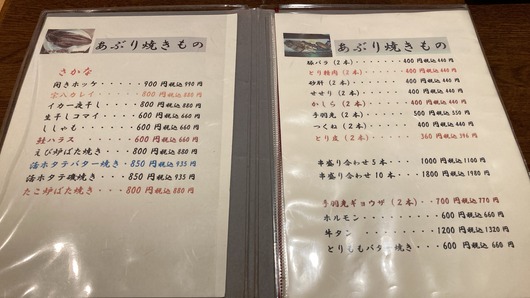 あぶり焼きもの
さかな
開きホッケ・・・・・・900円税込990円
宗八カレイ・・・・・・800円税込880円
イカ一夜干し・・・・・800円税込880円
生干しコマイ・・・・・600円税込660円
ししゃも・・・・・・・600円税込660円
鮭ハラス・・・・・・・600円税込660円
えび炉ばた焼き・・・・800円税込880円
活ホタテバター焼き・・850円税込935円
活ホタテ磯焼き・・・・850円税込935円
たこ炉ばた焼き・・・・800円税込880円
あぶり焼きもの
豚バラ(2本)・・・・・400円税込440円
とり精肉(2本)・・・・400円税込440円
砂肝(2本)・・・・・・400円税込440円
せせり(2本)・・・・・400円税込440円
かしら(2本)・・・・・400円税込440円
手羽先(2本)・・・・・500円税込550円
つくね(2本)・・・・・400円税込440円
とり皮(2本)・・・・・360円税込396円
串盛り合わせ5本・・・1000円税込1100円
串盛り合わせ10本・・・1800円税込1980円
手羽先ギョウザ(2本)・・700円税込770円
ホルモン・・・・・・・600円税込660円
牛タン・・・・・・・・1200円税込1320円
とりももバター焼き・・・600円税込660円